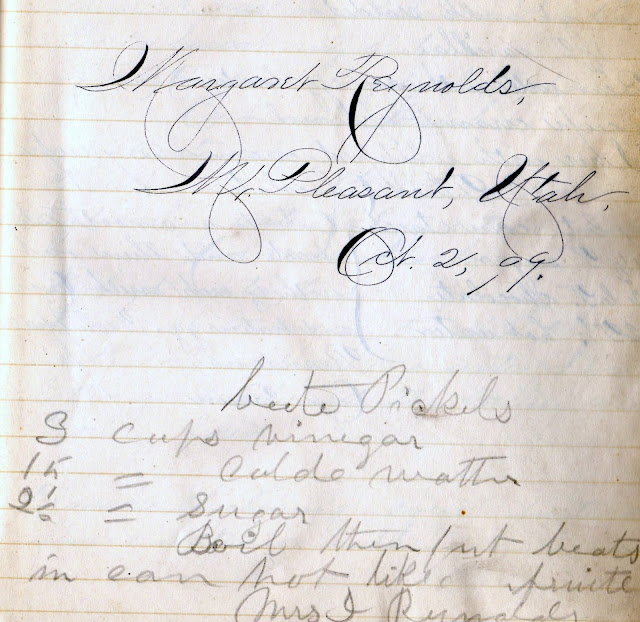 Margaret Reynolds,
Mt. Pleasant, Utah,
Oct. 2, '09.
beete Pickels
3 cups vinegar
1½ = colde watter
2½ = Sugar
Boil then put beats
in can hot like fruite
Mrs J Reynolds